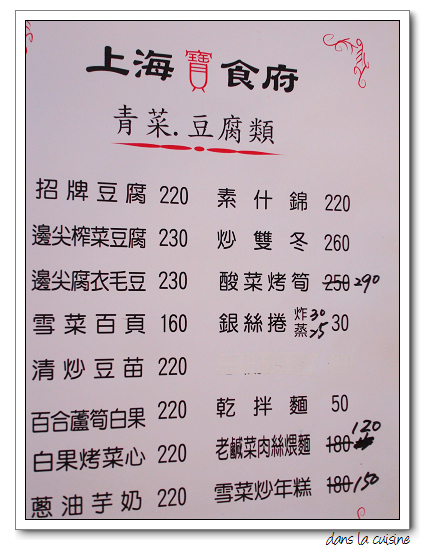 上海寶食府
青菜.豆腐類
招牌豆腐 220
邊尖榨菜豆腐 230
邊尖腐衣毛豆 230
雪菜百頁 160
清炒豆苗 220
百合蘆筍白果 220
白果烤菜心 220
蔥油芋奶 220
素什錦 220
炒雙冬 260
酸菜烤筍 250 290
銀絲捲 炸30 蒸25 30
乾拌麵 50
老鹹菜肉絲煨麵 180 120
雪菜炒年糕 180 150
dans la cuisine